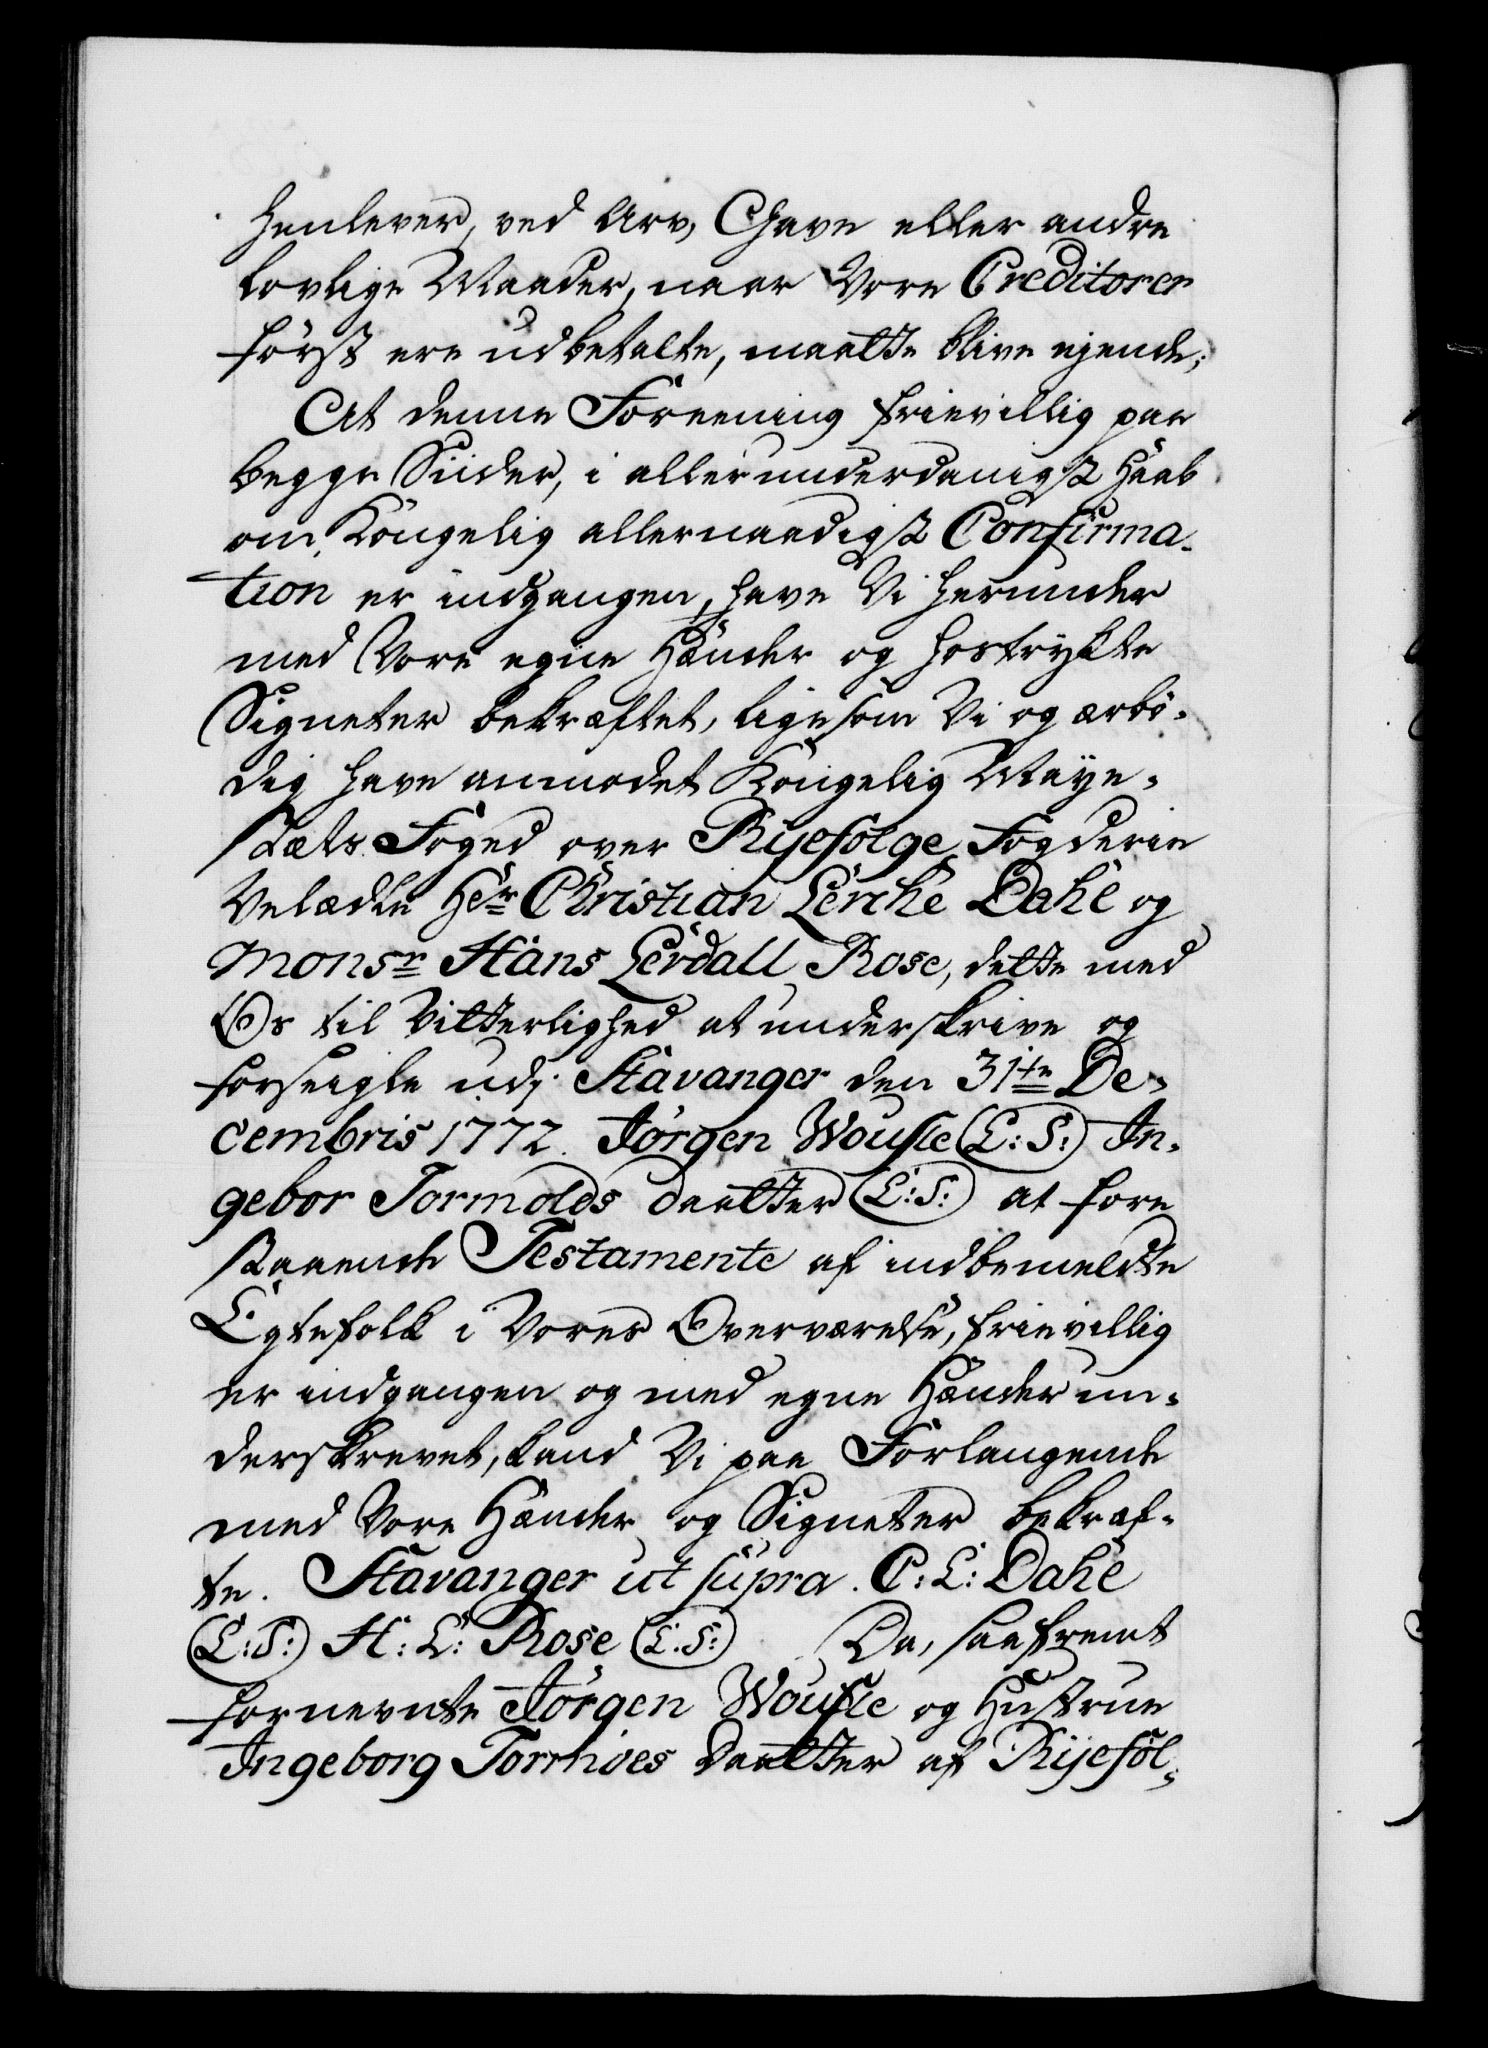 henlever, ved Arv, Gave eller andre
lovlige Maader, naar Vore Creditorer
først ere udbetalte, maatte blive ejende;
At denne Foreening frievillig paa
begge Siider, i allerunderdanigst Haab
om Kongelig allernaadigst Confirma-
tion er indgangen, have Vi herunder
med Vore egne Hænder og hostrykte
Signeter bekræftet, ligesom Vi og ærbø-
dig have anmodet Kongelig Maye-
stæts Foged over Ryefølge Fogderie
Velædle Hr Christian Lerche Dahl og
Monsr Hans Lerdall Rose, dette med
Os til Vitterlighed at underskrive og
forseigle udj Stavanger den 31te De-
cembris 1772. Jørgen Woufle (L:S:) In-
gebor Tormolds daatter (L:S:) at fore
staaende Testamente af indbemeldte
Egtefolk i Vores Overværelse, frievillig
er indgangen og med egne Hænder un-
derskrevet, kand Vi paa Forlangende
med Vore Hænder og Signeter bekræf-
te. Stavanger ut supra. C: L: Dahl
(L:S:) H: L: Rose (L:S:) Da, saafremt
fornevnte Jørgen Woufle og Hustrue
Ingeborg Tormoes Daatter af Ryeføl-